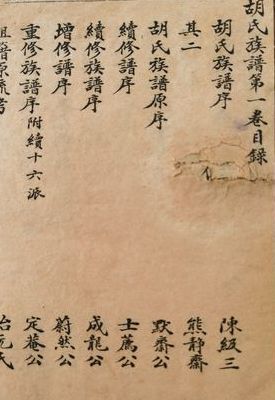 胡氏族譜第一卷目錄
胡氏族譜序 陳級三
其二 熊靜齋
胡氏族譜原序 默齋公
續修譜序 士薦公
續修族譜序 成龍公
增修譜序 蔚然公
重修族譜序附續十六派 定菴公